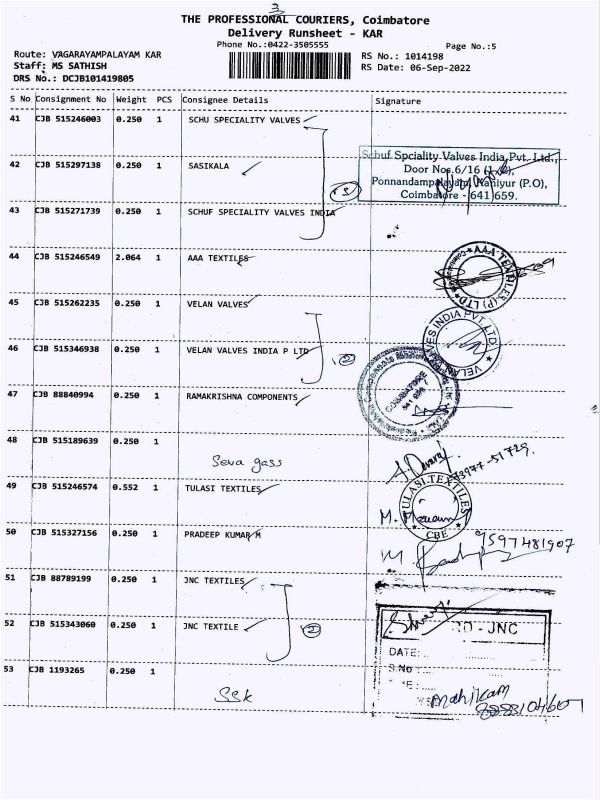 3
THE PROFESSIONAL COURIERS, Coimbatore
Delivery Runsheet - KAR
Phone No.:0422-3505555
Page No.:5
Route: VAGARAYAMPALAYAM KAR
RS No.: 1014198
Staff: MS SATHISH
RS Date: 06-Sep-2022
DRS No.: DCJB101419805
S No Consignment No Weight PCS Consignee Details Signature
41 CJB 515246003 0.250 1 SCHU SPECIALITY VALVES
Schuf Spciality Valves India Pvt. Ltd.,
Door Nos.6/16
42 CJB 515297138 0.250 1 SASIKALA
Ponnandampalayam, Kaniyur (P.O),
Coimbatore - 641 659.
3
43 CJB 515271739 0.250 1 SCHUF SPECIALITY VALVES INDIA
44 CJB 515246549 2.064 1 AAA TEXTILES
AAA TEXTILES (P) LTD
45 CJB 515262235 0.250 1 VELAN VALVES
VELAN VALVES INDIA PVT. LTD.
46 CJB 515346938 0.250 1 VELAN VALVES INDIA P LTD
2
COIMBATORE
47 CJB 88840994 0.250 1 RAMAKRISHNA COMPONENTS
48 CJB 515189639 0.250 1
Seva gass
73977-51729.
49 CJB 515246574 0.552 1 TULASI TEXTILES
TULASI TEXTILES
CBE
50 CJB 515327156 0.250 1 PRADEEP KUMAR M
9597481907
51 CJB 88789199 0.250 1 JNC TEXTILES
52 CJB 515343060 0.250 1 JNC TEXTILE
2
- JNC
DATE:
S.No
53 CJB 1193265 0.250 1
SSK